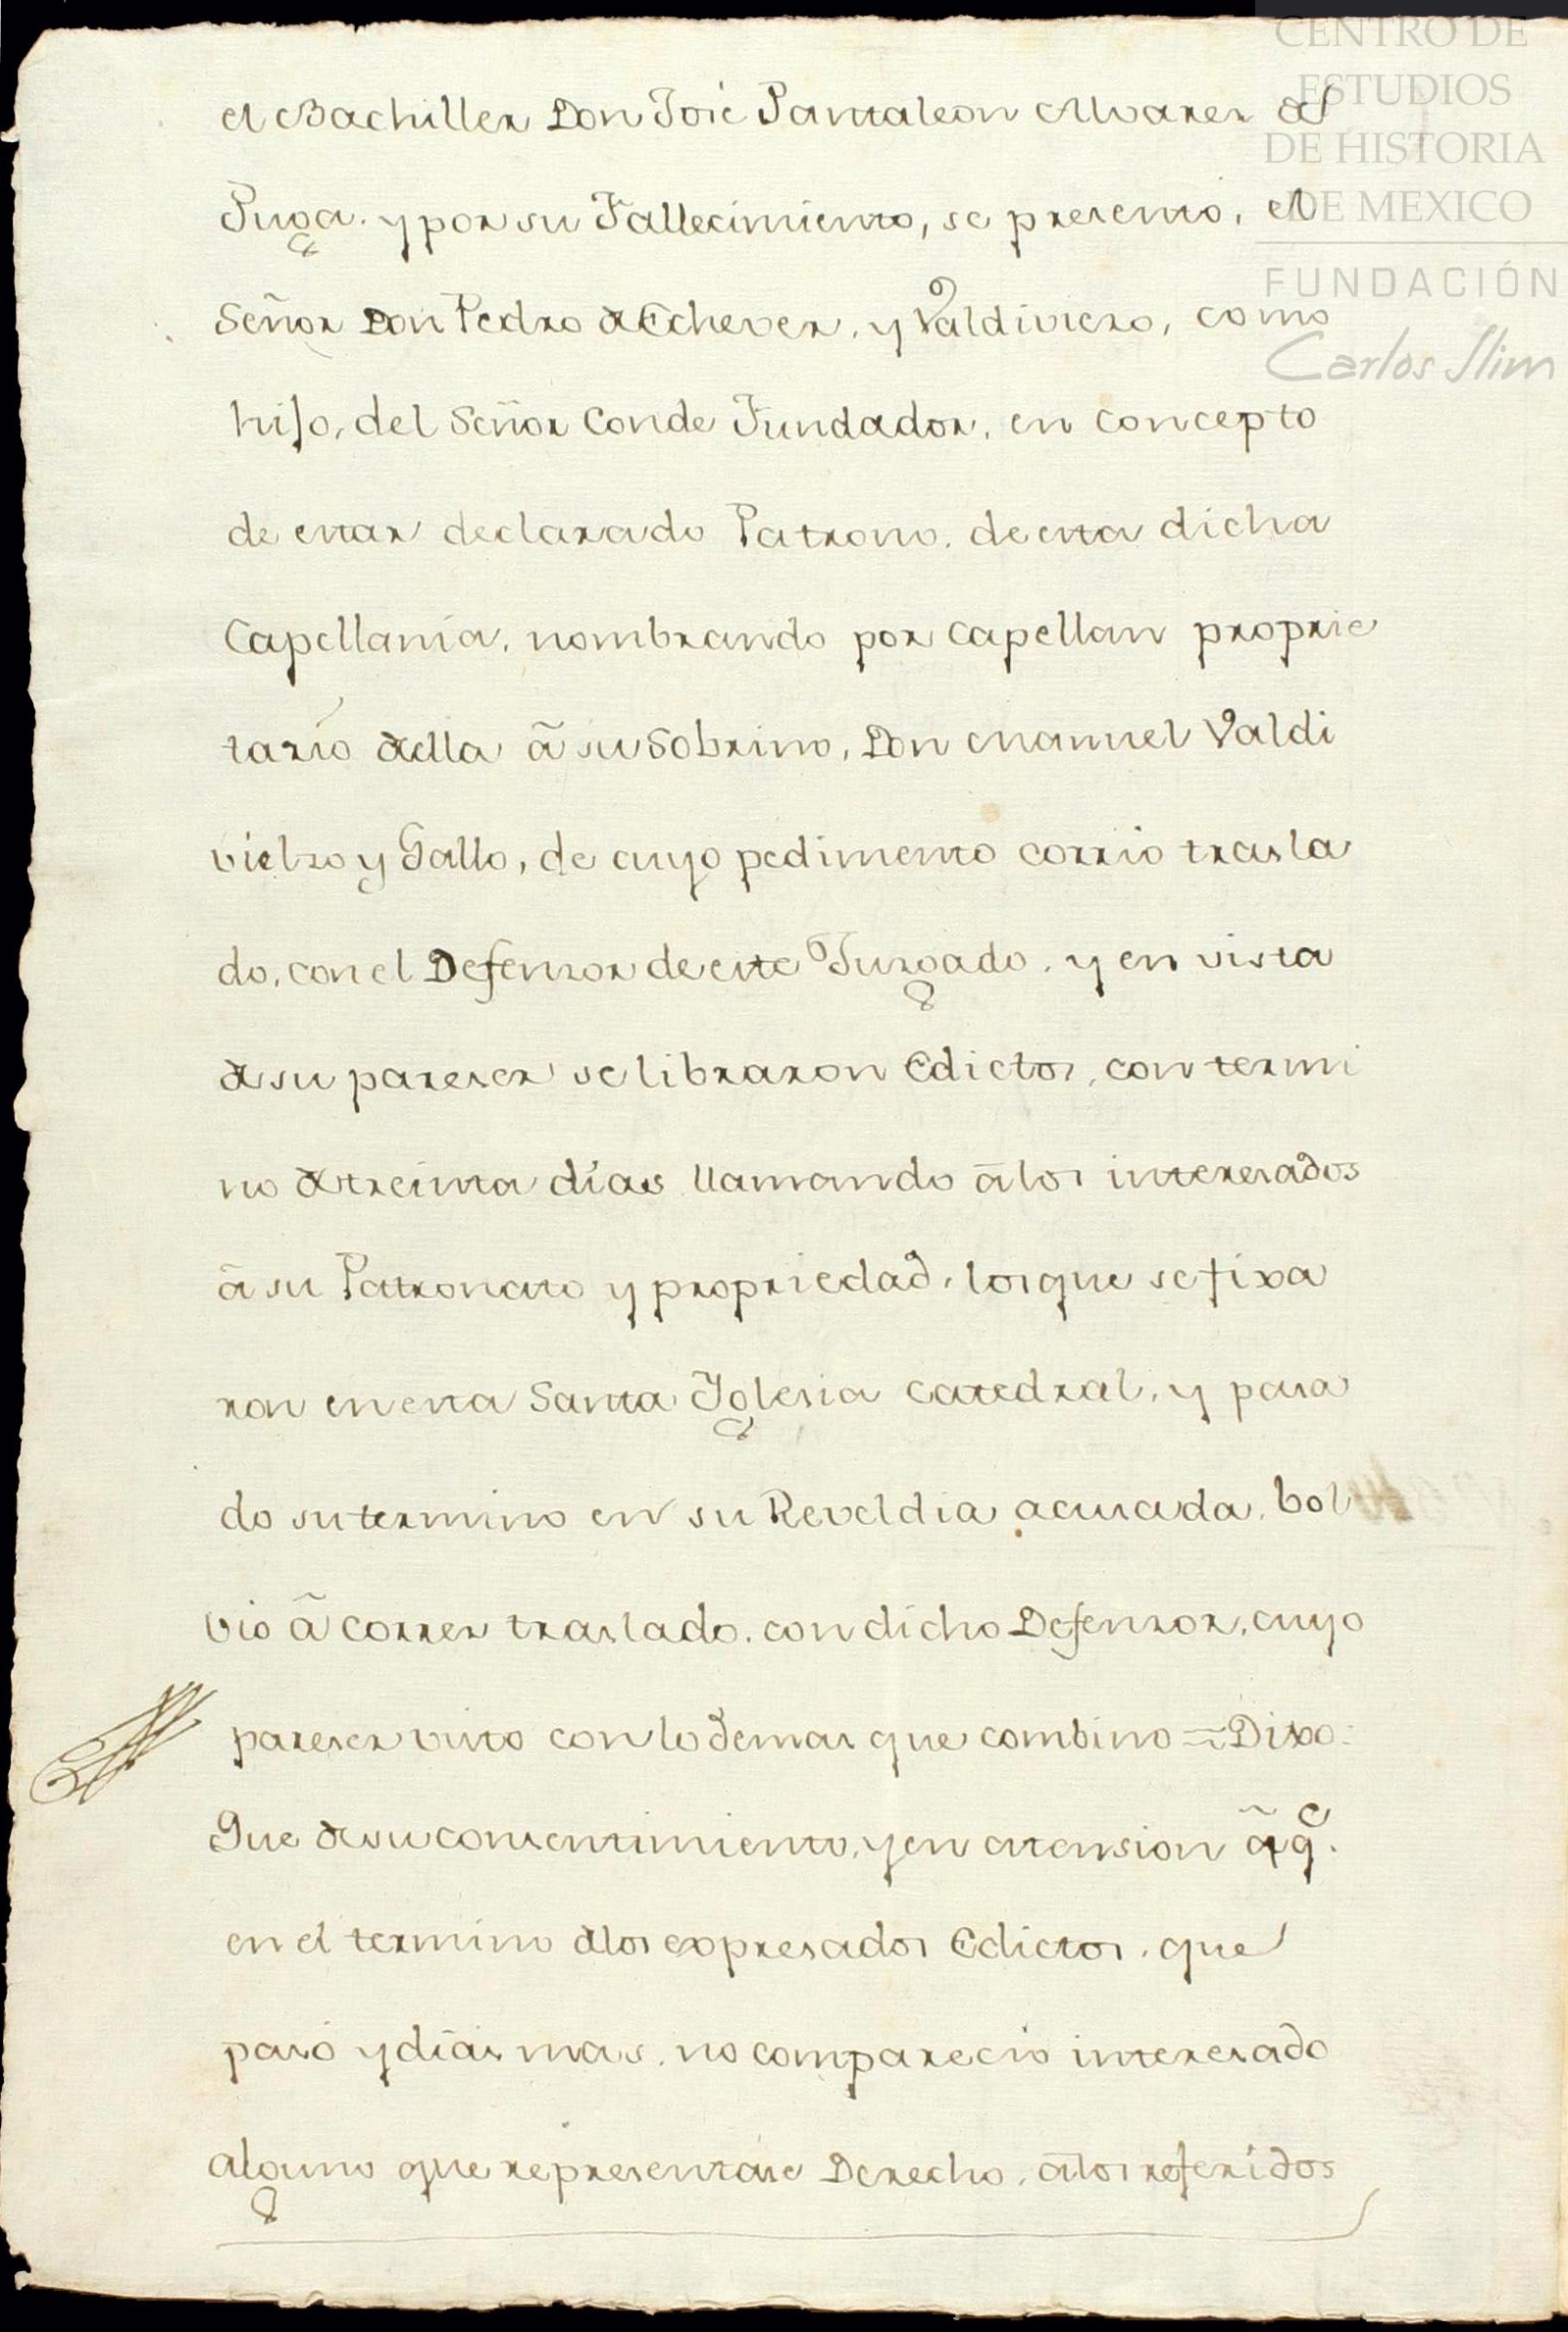 CENTRO DE
ESTUDIOS
DE HISTORIA
DE MEXICO
FUNDACIÓN
Carlos Slim
el Bachiller Don José Pantaleon Alvares de
Puga. y por su Fallecimiento, se presentó, el
Señor Don Pedro de Echever, y Valdiviero, como
hijo, del Señor Conde Fundador, en concepto
de estar declarado Patrono, de esta dicha
Capellanía, nombrando por capellan proprie
tarío de ella ã su sobrino, Don Manuel Valdi
vielso y Gallo, de cuyo pedimento corrio trasla
do, con el Defensor de este Jusgado, y en vista
de su pareser se libraron Edictos, con termi
no de treinta días llamando ã los interesados
ã su Patronato y propriedad, los que se fixa
ron en esta Santa Yglesia Catedral, y pasa
do su termino en su Reveldia acusada, bol
vio ã correr traslado, con dicho Defensor, cuyo
pareser visto con lo demas que combino = Dixo:
Que de su consentimiento, y en atension ã qe.
en el termino de los expresados Edictos, que
pasó y días mas, no comparecio interesado
alguno que representáse Derecho, ã los referidos